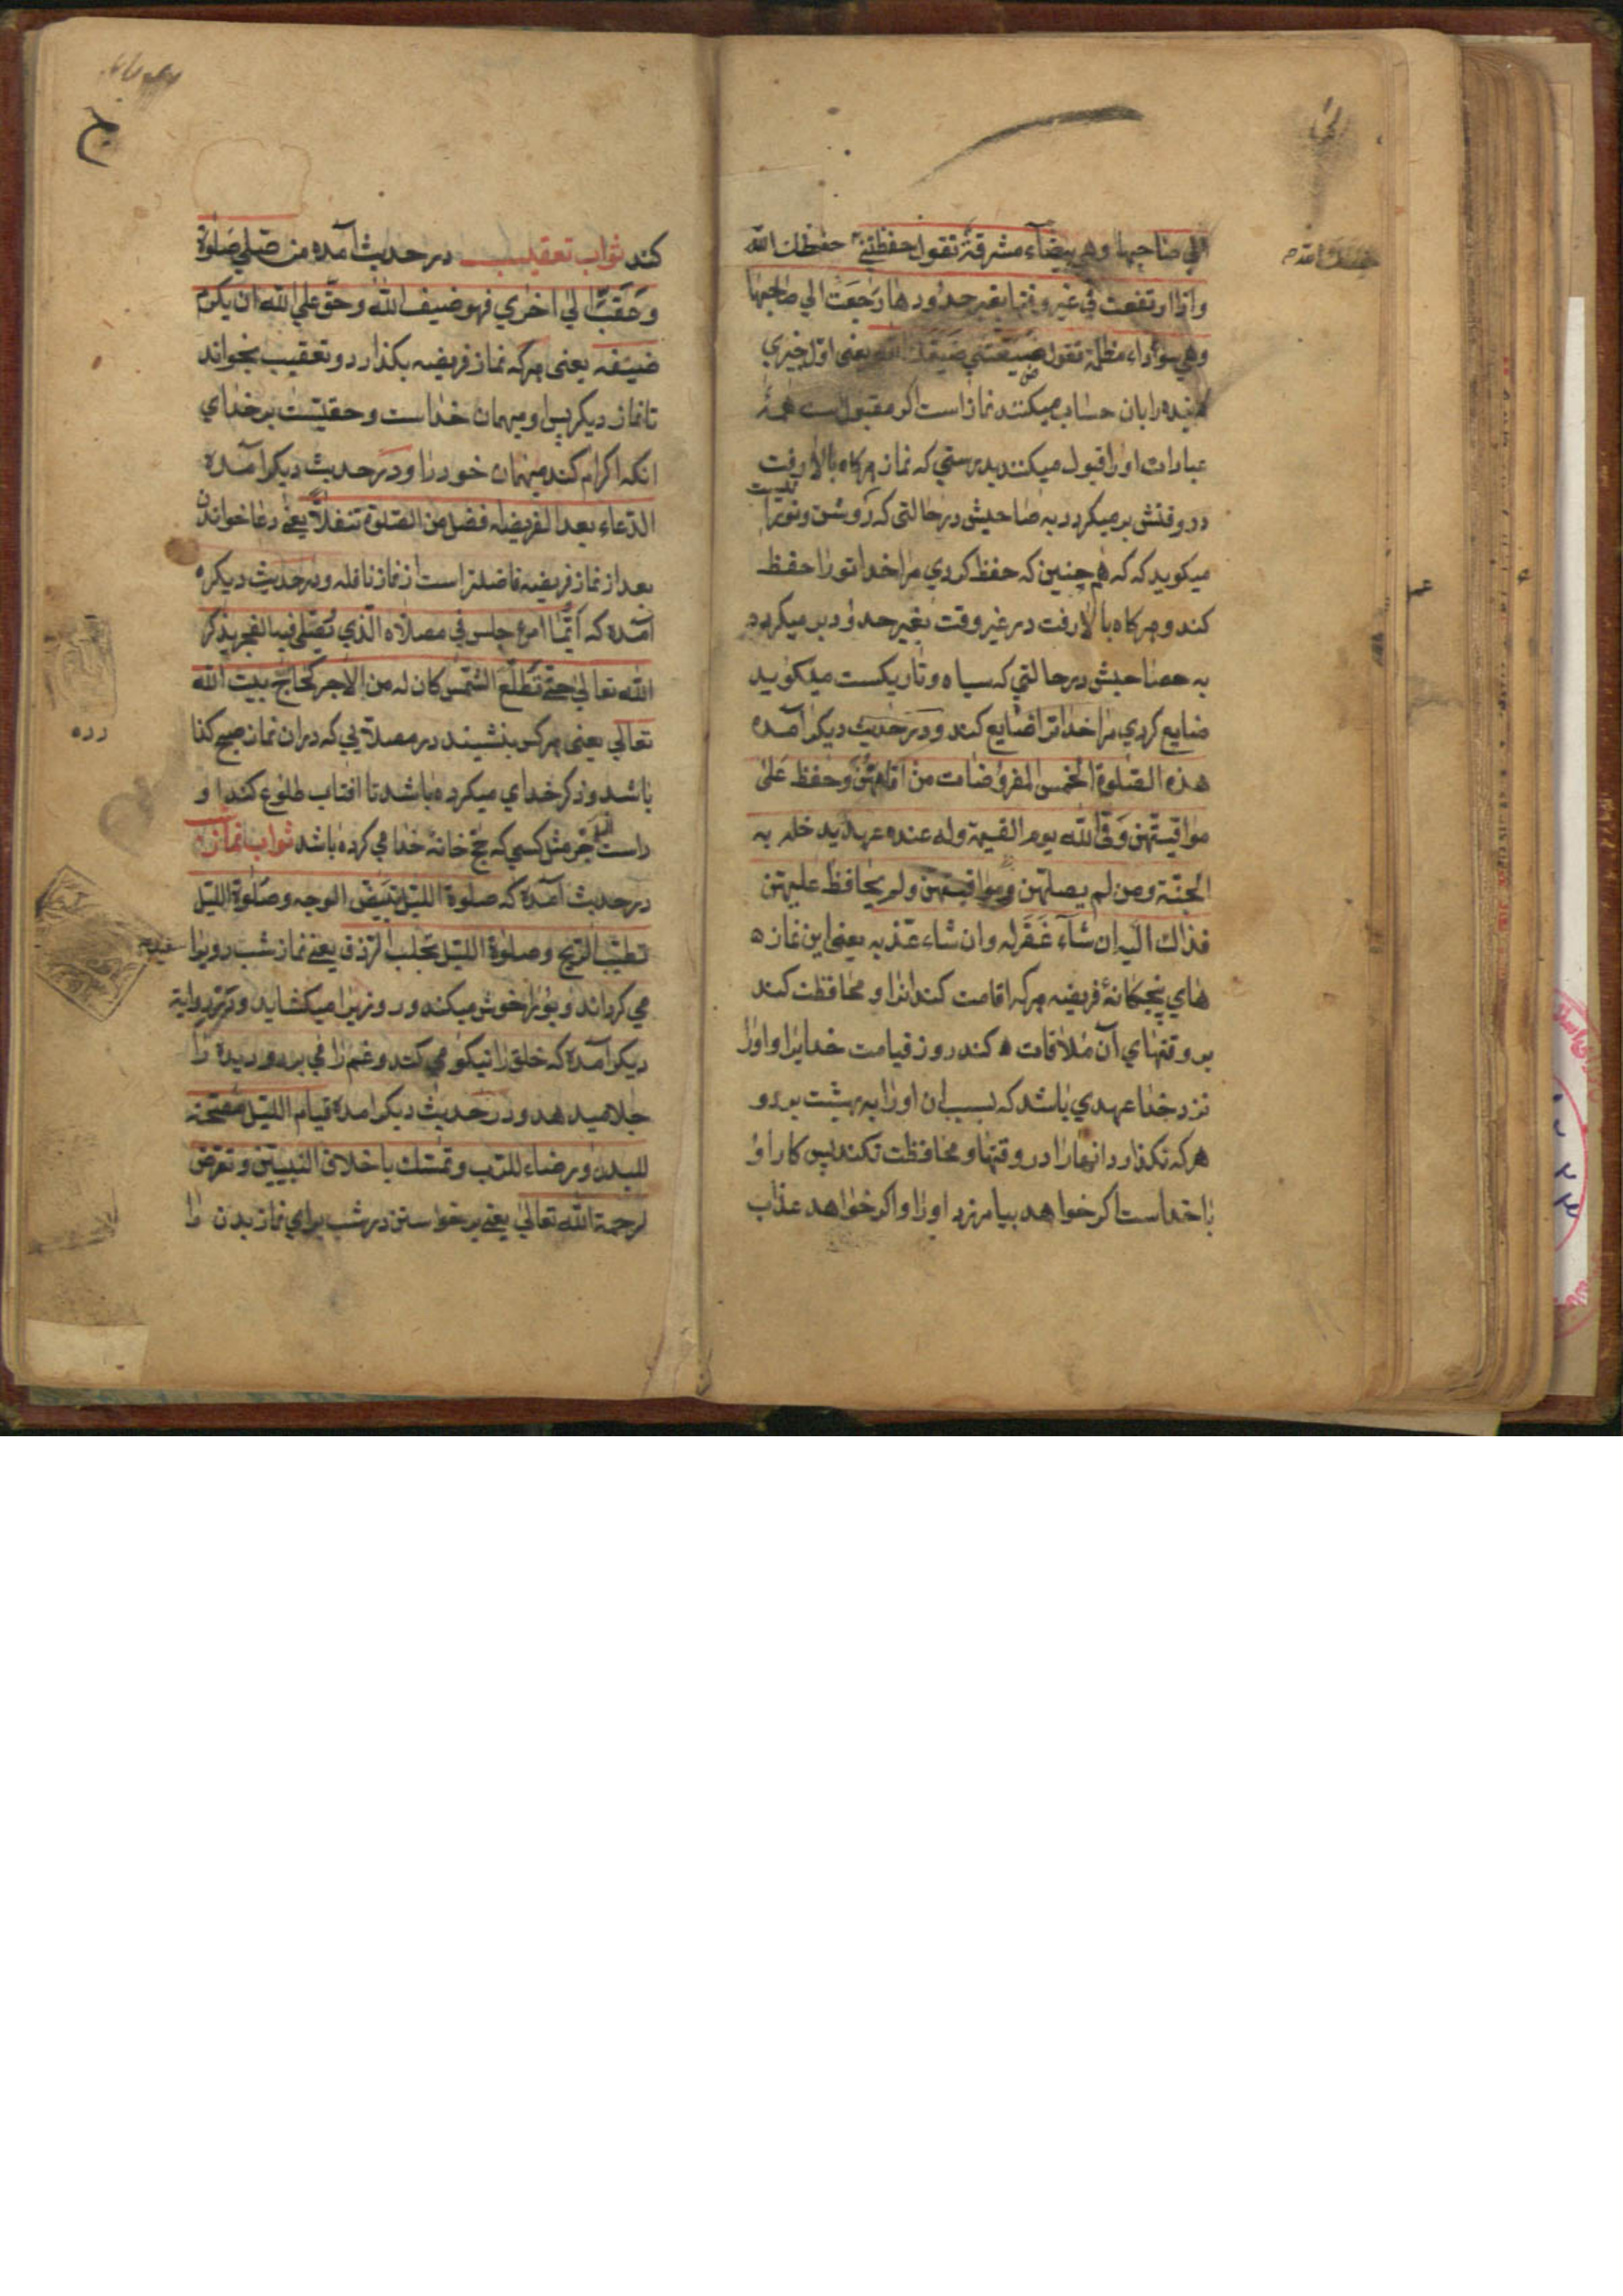 الي صاحبها وهي بيضآء مشرقة تقول حفظتني حفظك الله
واذا ارتفعت في غير وقتها بغير حدودها رجعت الي صاحبها
وهي سوداء مظلمة تقول ضيعتني ضيعك الله يعني اول چيزي
كه بنده را بان حساب ميكنند نماز است اكر مقبولست همهٔ
عبادات او را قبول ميكنند بدرستي كه نماز هركاه بالا رفت
در وقتش برميكردد به صاحبش در حالتي كه روشن و نورانيست
ميكويد كه كه هم چنين كه حفظ كردي مرا خدا تو را حفظ
كند و هركاه بالا رفت در غير وقت بغير حدود برميكردد
به صاحبش در حالتي كه سياه و تاريكست ميكويد
ضايع كردي مرا خدا ترا ضايع كند و در حديث ديكر آمده
هذه الصلوة الخمس المفروضات من اقامهن وحفظ علي
مواقيتهن وقي الله يوم القيمة وله عنده عهد يدخله به
الجنة ومن لم يصلهن ومواقيتهن ولم يحافظ عليهن
فذاك اليه ان شآء غفر له وان شاء عذبه يعني اين نمازه
هاي پنجكانهٔ فريضه هركه اقامت كند انرا و محافظت كند
بر وقتهاي آن ملاقات ه كند روز قيامت خدايرا و او را
نزد خدا عهدي باشد كه بسبب ان او را به بهشت برد و
هركه نكذارد انهارا در وقتها و محافظت نكند پس كار او
با خداست اكر خواهد بيامرزد او را و اكر خواهد عذاب
كند ثواب تعقيب در حديث آمده من صلي صلوة
وعقب الي اخري فهو ضيف الله وحق علي الله ان يكرم
ضيفه يعني هركه نماز فريضه بكذارد و تعقيب بخواند
تا نماز ديكر پس او ميهمان خداست و حقيست بر خداي
انكه اكرام كند ميهمان خود را و در حديث ديكر آمده
الدعاء بعد الفريضه فضل من الصلوة تنفلاً يعني دعا خواندن
بعد از نماز فريضه فاضلتر است از نماز نافله و در حديث ديكره
آمده كه ايّما امرء جلس في مصلاه الذي يصلي فيه الفجر يذكر
الله تعالي حتي تطلع الشمس كان له من الاجر كحاج بيت الله
تعالي يعني هركس بنشيند در مصلائي كه دران نماز صبح كذا
باشد و ذكر خداي ميكرده باشد تا افتاب طلوع كند او
راست اجر مثل كسي كه حج خانهٔ خدا مي كرده باشد ثواب نماز
در حديث آمده كه صلوة الليل تبيض الوجه وصلوة الليل
تطيب الريح وصلوة الليل تجلب الرزق يعني نماز شب رويرا سفيد
مي كرداند و بويرا خوش ميكند و روزيرا ميكشايد و در رواية
ديكر آمده كه خلق را نيكو مي كند و غم را مي برد و ديده را
جلا ميدهد و در حديث ديكر آمده قيام الليل مصحة
للبدن ورضاء للرب وتمسك باخلاق النبيين وتعرض
لرحمة الله تعالي يعني برخواستن در شب براي نماز بدن را